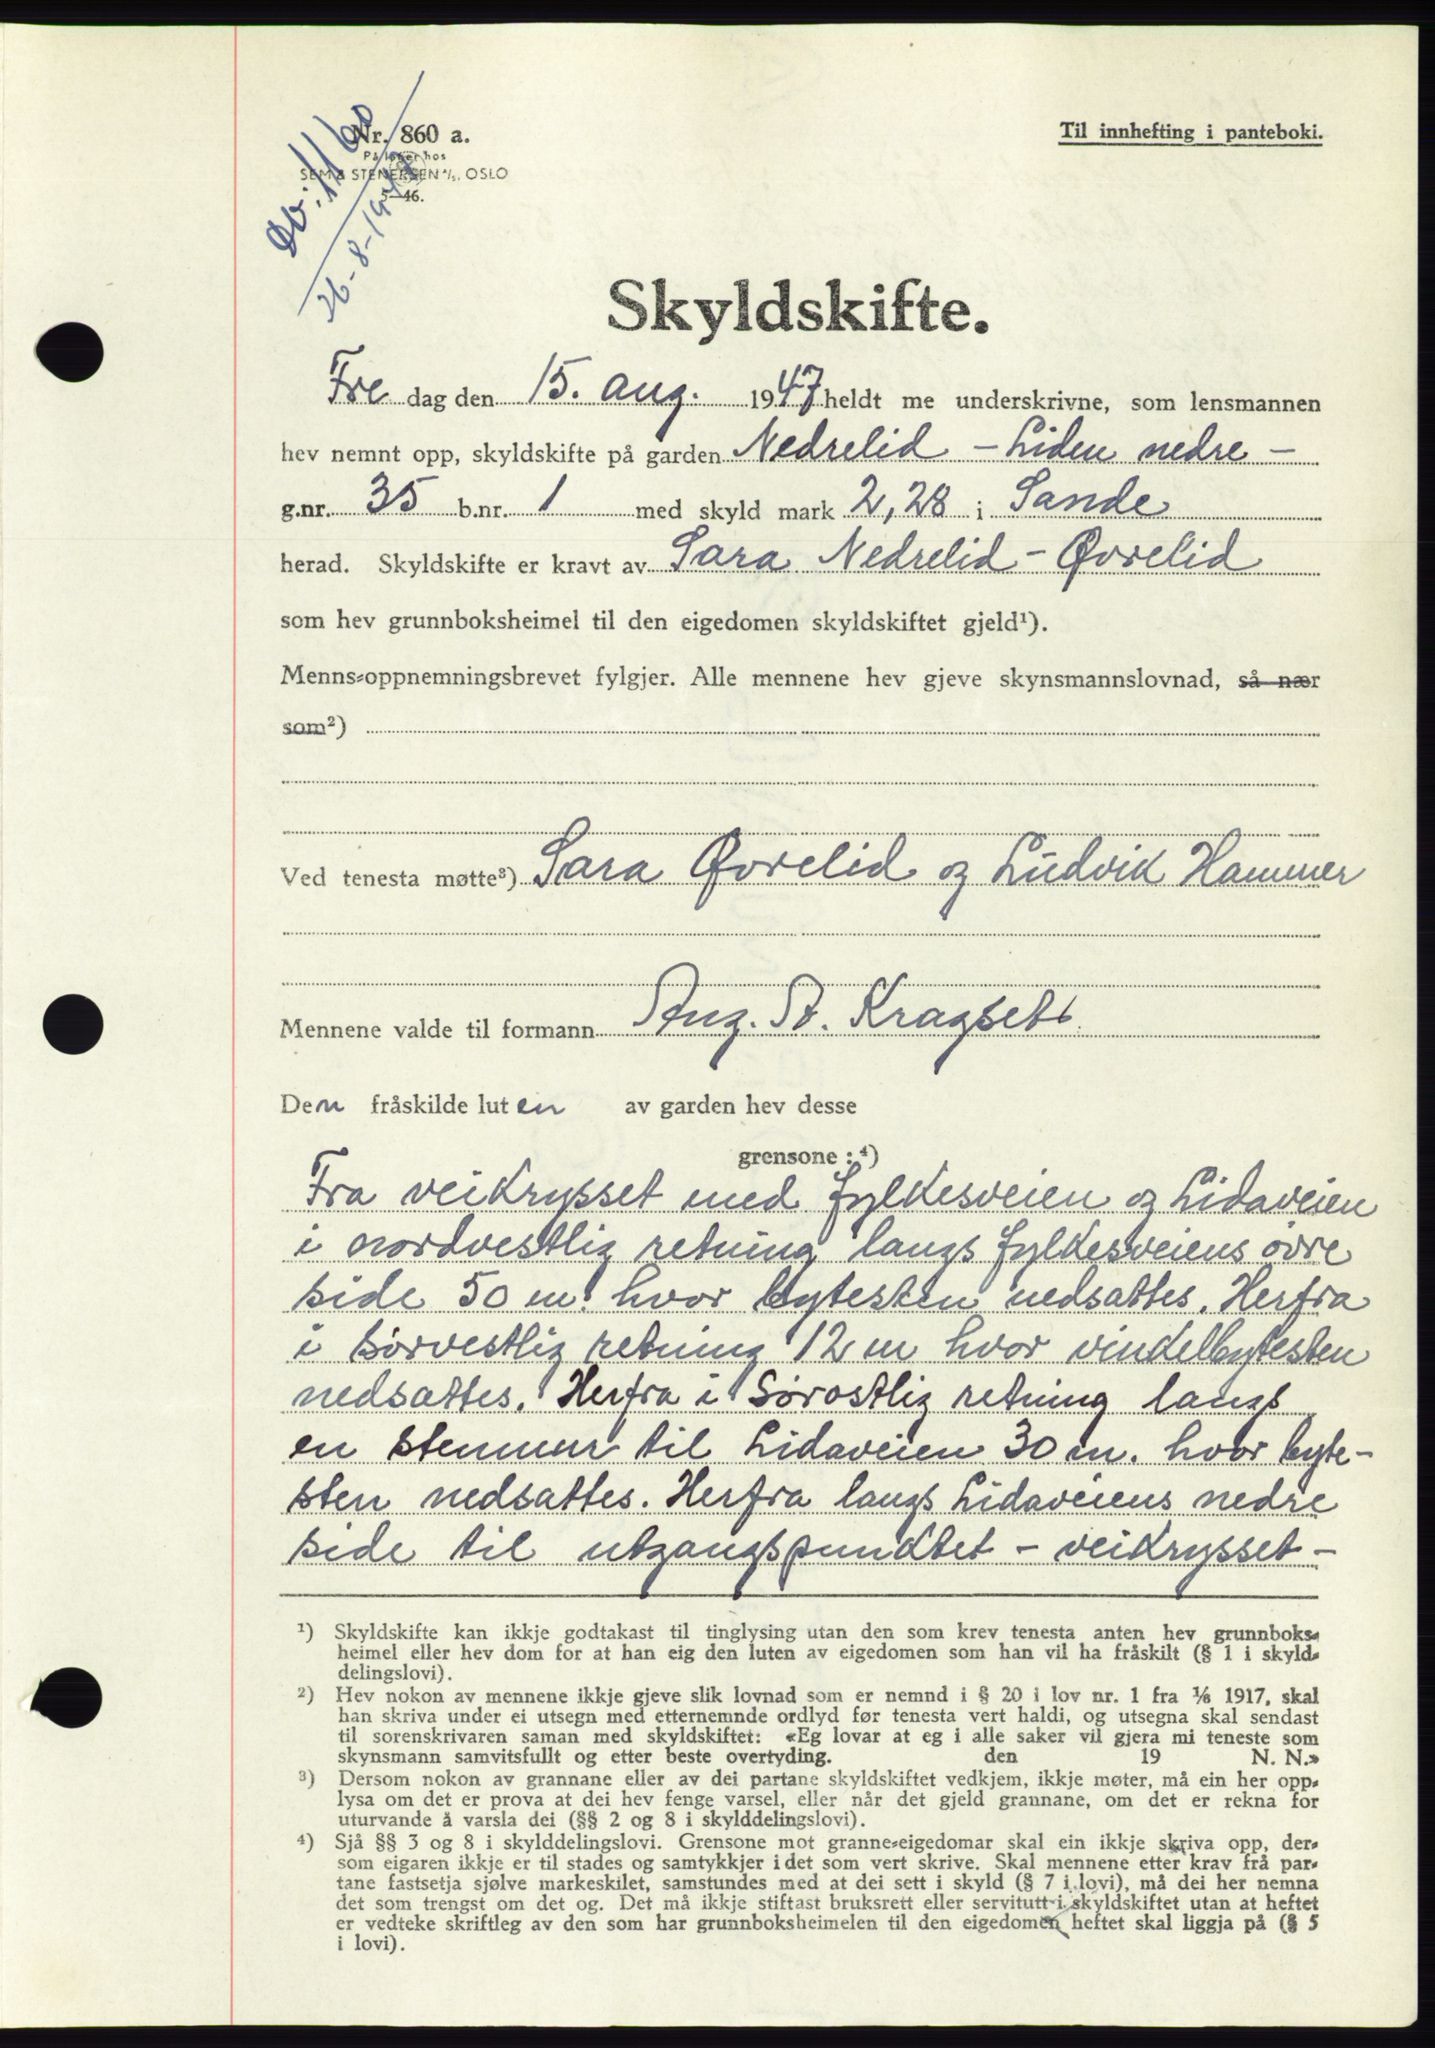 Nr. 860 a.
På lager hos
SEM & STENERSEN A/S, OSLO
5—46.
Til innhefting i panteboki.
1160
26-8-1947
Skyldskifte.
Fre dag den 15. aug. 1947 heldt me underskrivne, som lensmannen
hev nemnt opp, skyldskifte på garden Nedrelid - Liden nedre -
g.nr. 35 b.nr. 1 med skyld mark 2,28 i Sande
herad. Skyldskifte er kravt av Sara Nedrelid - Øvrelid
som hev grunnboksheimel til den eigedomen skyldskiftet gjeld¹).
Menns-oppnemningsbrevet fylgjer. Alle mennene hev gjeve skynsmannslovnad, så nær
som²)
Ved tenesta møtte³) Sara Øvrelid og Ludvik Hammer
Mennene valde til formann Aug. A. Kragset
Den fråskilde luten av garden hev desse
grensone :⁴)
Fra veikrysset med fylkesveien og Lidaveien
i nordvestlig retning langs fylkesveiens øvre
side 50 m. hvor bytesten nedsattes. Herfra
i sørvestlig retning 12 m hvor vinkelbytesten
nedsattes. Herfra i Sørostlig retning langs
en stenmur til Lidaveien 30 m. hvor byte-
sten nedsattes. Herfra langs Lidaveiens nedre
side til utgangspundktet - veikrysset -
¹) Skyldskifte kan ikkje godtakast til tinglysing utan den som krev tenesta anten hev grunnboks-
heimel eller hev dom for at han eig den luten av eigedomen som han vil ha fråskilt (§ 1 i skyld-
delingslovi).
²) Hev nokon av mennene ikkje gjeve slik lovnad som er nemnd i § 20 i lov nr. 1 fra 1/6 1917, skal
han skriva under ei utsegn med etternemnde ordlyd før tenesta vert haldi, og utsegna skal sendast
til sorenskrivaren saman med skyldskiftet: «Eg lovar at eg i alle saker vil gjera mi teneste som
skynsmann samvitsfullt og etter beste overtyding. den 19 N. N.»
³) Dersom nokon av grannane eller av dei partane skyldskiftet vedkjem, ikkje møter, må ein her opp-
lysa om det er prova at dei hev fenge varsel, eller når det gjeld grannane, om det er rekna for
uturvande å varsla dei (§§ 2 og 8 i skylddelingslovi).
⁴) Sjå §§ 3 og 8 i skylddelingslovi. Grensone mot granne-eigedomar skal ein ikkje skriva opp, der-
som eigaren ikkje er til stades og samtykkjer i det som vert skrive. Skal mennene etter krav frå par-
tane fastsetja sjølve markeskilet, samstundes med at dei sett i skyld (§ 7 i lovi), må dei her nemna
det som trengst om det og. Det må ikkje stiftast bruksrett eller servitutt i skyldskiftet utan at heftet
er vedteke skriftleg av den som har grunnboksheimelen til den eigedomen heftet skal liggja på (§ 5
i lovi).